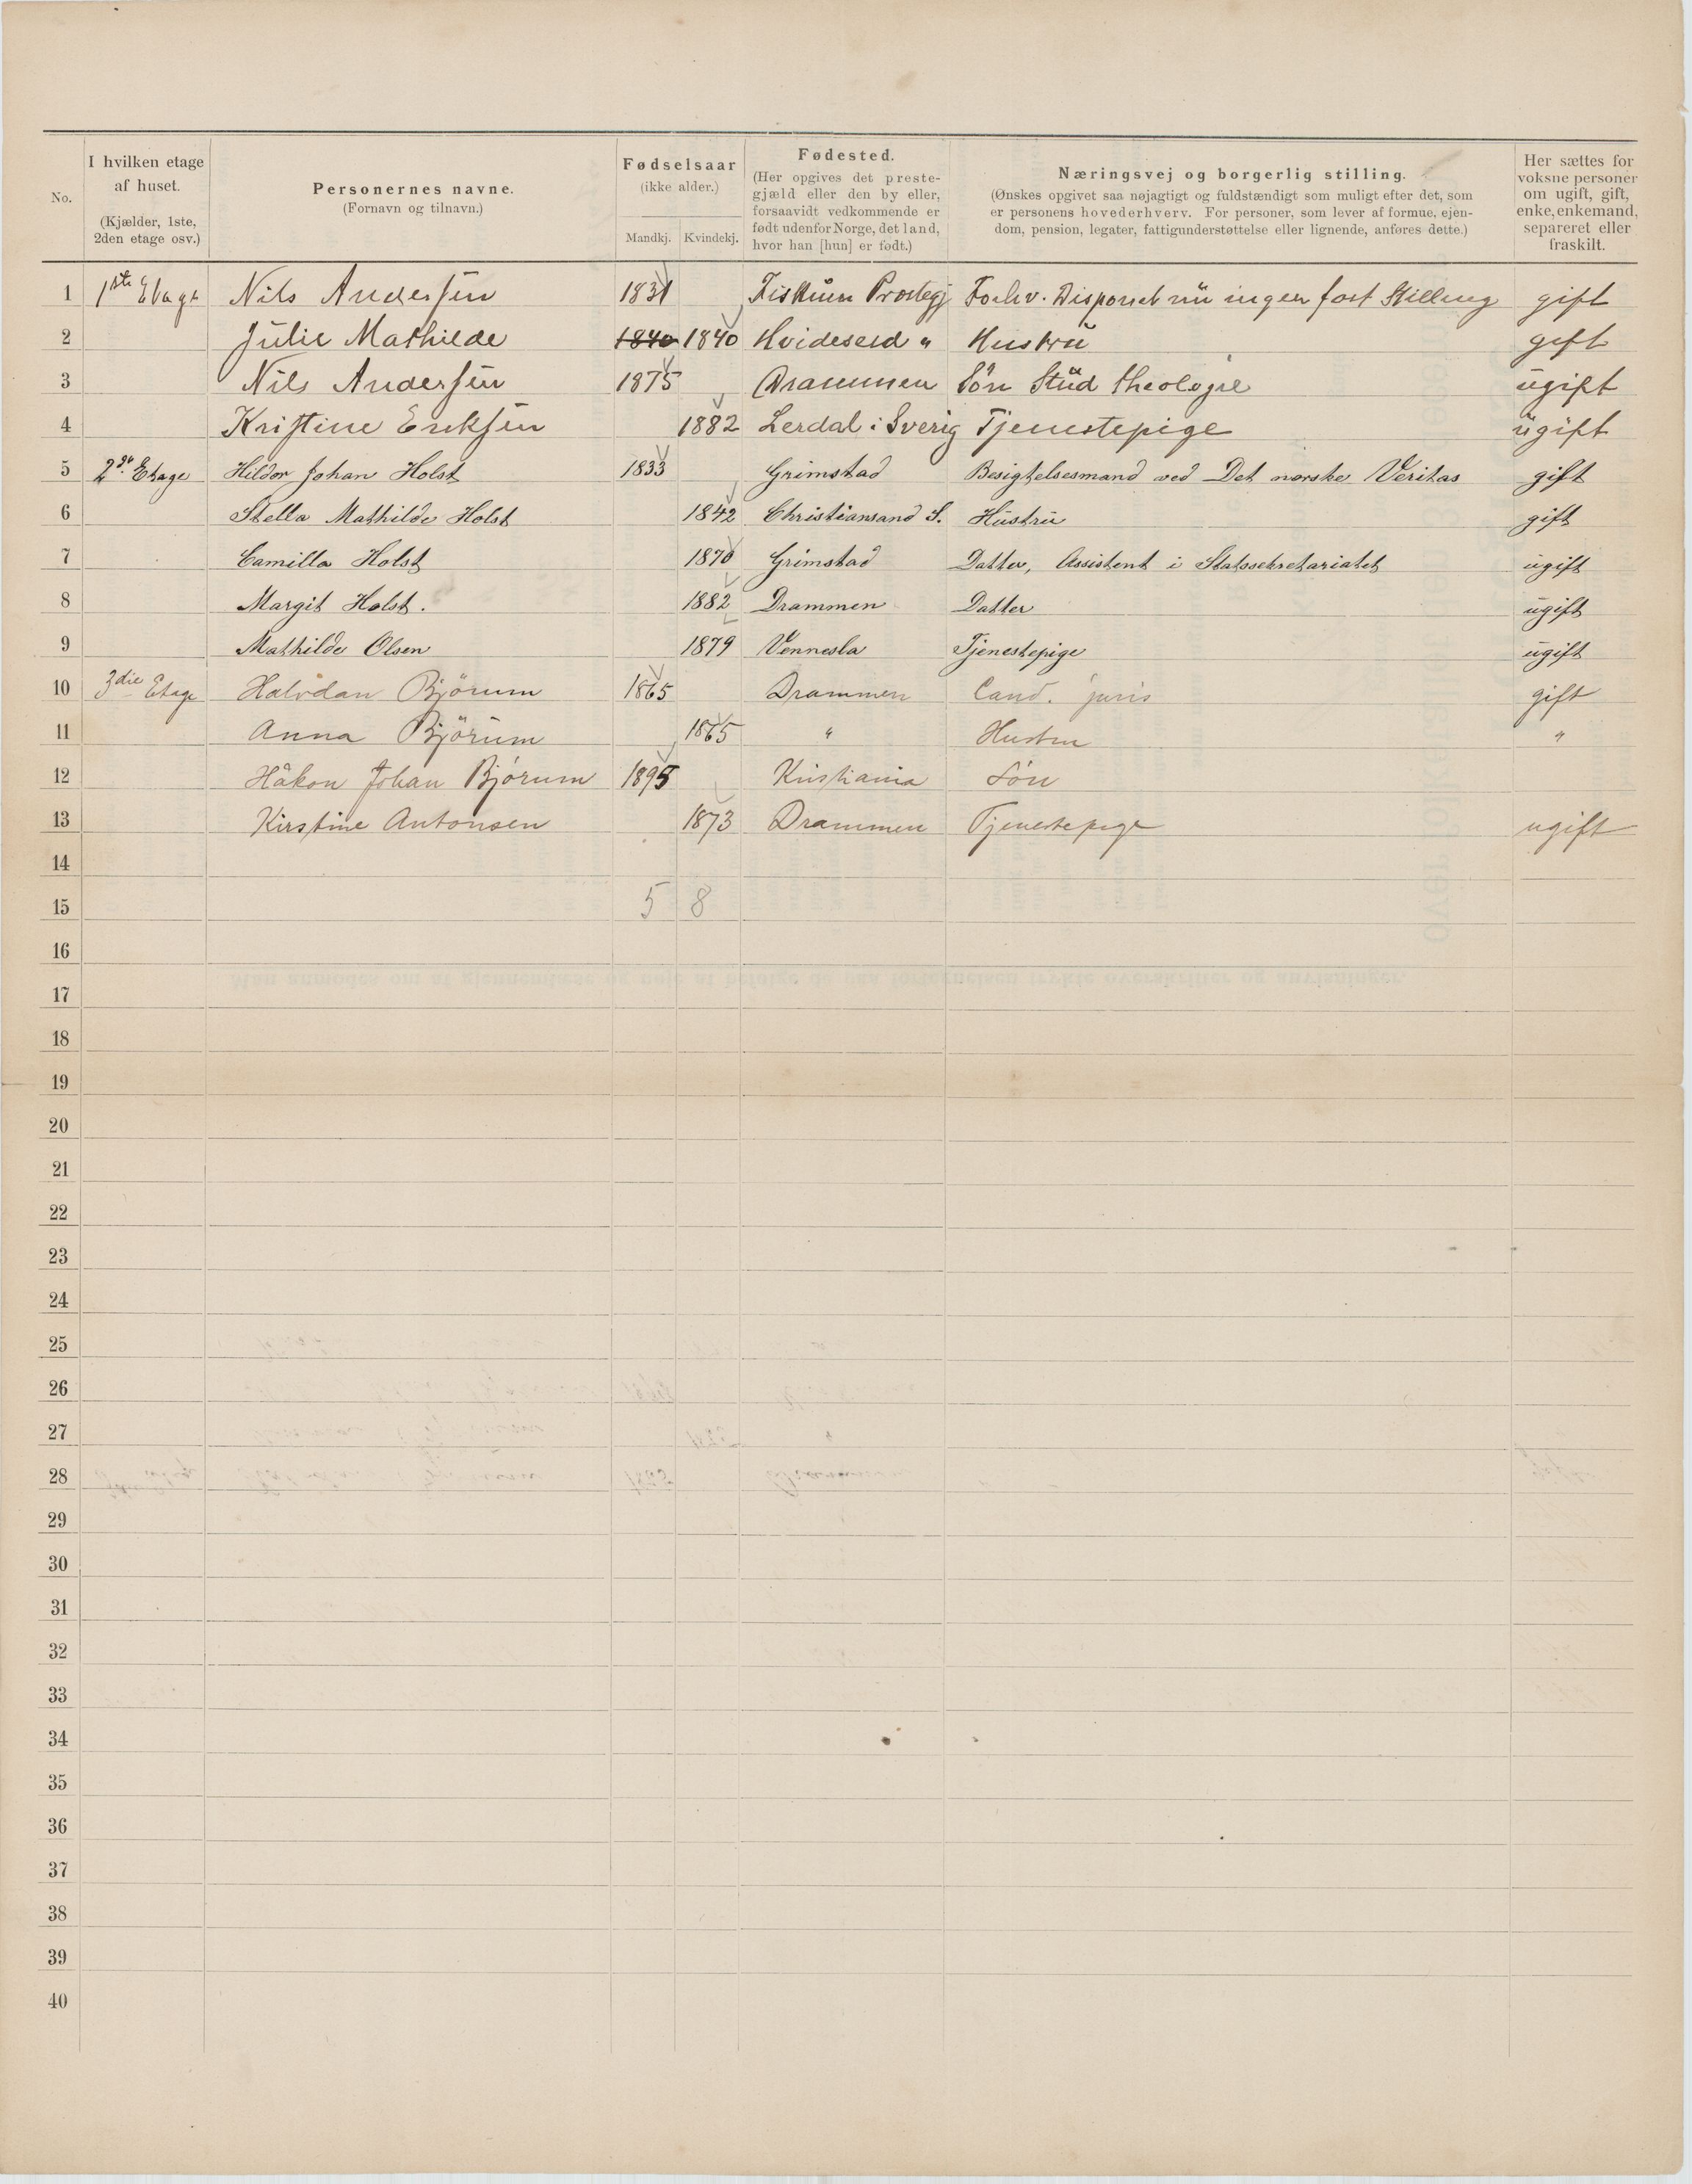 No.
I hvilken etage af huset.
(Kjælder, 1ste, 2den etage osv.)
Personernes navne.
(Fornavn og tilnavn.)
Fødselsaar
(ikke alder.)
Mandkj. Kvindekj.
Fødested.
(Her opgives det preste-
gjæld eller den by eller,
forsaavidt vedkommende er
født udenfor Norge, det land,
hvor han [hun] er født.)
Næringsvej og borgerlig stilling.
(Ønskes opgivet saa nøjagtigt og fuldstændigt som muligt efter det, som
er personens hovederhverv. For personer, som lever af formue, ejen-
dom, pension, legater, fattigunderstøttelse eller lignende, anføres dette.)
Her sættes for
voksne personer
om ugift, gift,
enke, enkemand,
separeret eller
fraskilt.
1 1ste Etage Nils Andersen 1831 Fiskum Prestegj Forhv. nu ingen fast Stilling gift
2 Julie Mathilde 1840 1840 Hvideseid " Hustru gift
3 Nils Andersen 1875 Drammen Sön Stud theologie ugift
4 Kristine Eriksen 1882 Lerdal i Sverig Tjenestepige ugift
5 2de Etage Hildor Johan Holst 1833 Grimstad Besigtelsesmand ved Det norske Veritas gift
6 Stella Mathilde Holst 1842 Christiansand S. Hustru gift
7 Camilla Holst 1870 Grimstad Datter, Assistent i Statssekretariatet ugift
8 Margit Holst. 1882 Drammen Datter ugift
9 Mathilde Olsen 1879 Vennesla Tjenestepige ugift
10 3die Etage Halvdan Björum 1865 Drammen Cand. juris gift
11 Anna Björum 1865 " Hustru "
12 Håkon Johan Björum 1895 Kristiania Sön
13 Kirstine Antonsen 1873 Drammen Tjenestepige ugift
14
15 5 8
16
17
18
19
20
21
22
23
24
25
26
27
28
29
30
31
32
33
34
35
36
37
38
39
40